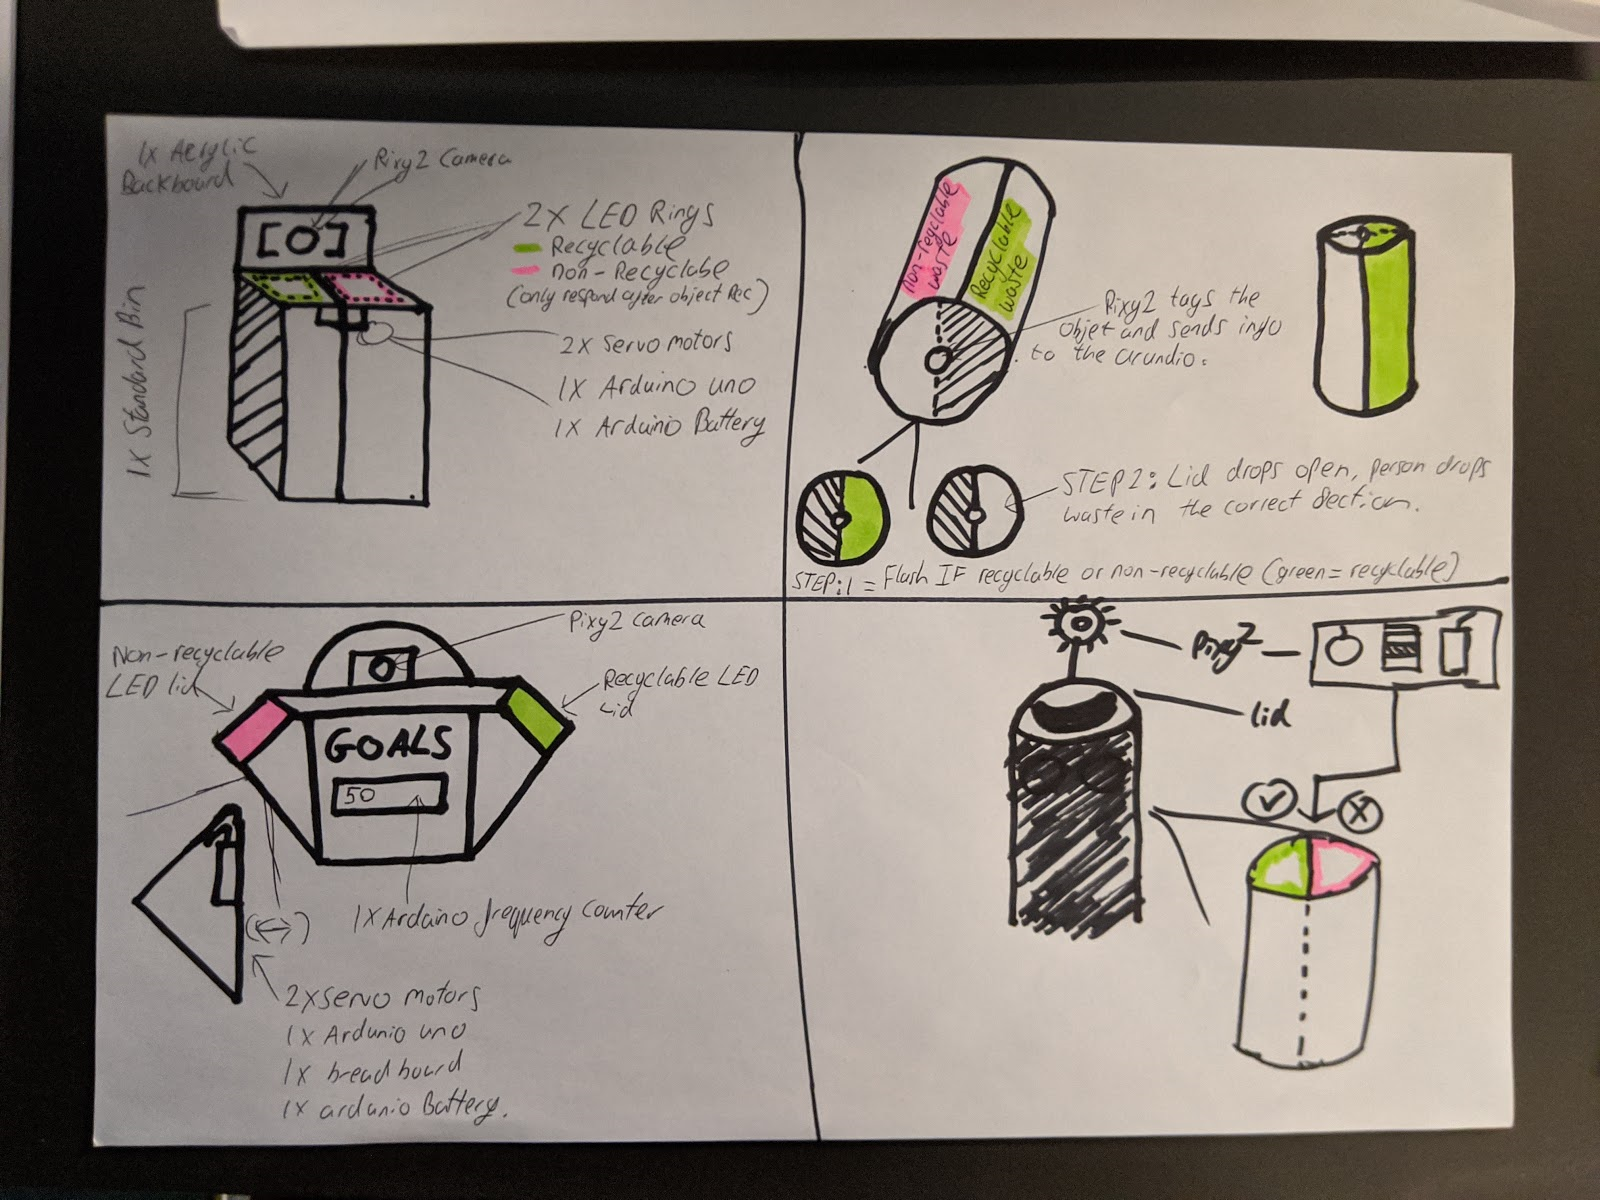 1x Acrylic
Backboard
Pixy2 Camera
2x LED Rings
Recyclable
non-Recyclabe
(only respond after object Rec)
2x Servo motors
1x Arduino uno
1x Arduino Battery
1x Standard Bin
non-recyclable
waste
Recyclable
waste
Pixy2 tags the
objet and sends info
to the arundio.
STEP2: Lid drops open, person drops
waste in the correct section.
STEP:1 = Flash IF recyclable or non-recyclable (green = recyclable)
Non-recyclable
LED lid
Pixy2 camera
Recyclable LED
Lid
GOALS
50
1x Arduino frequency counter
2x servo motors
1x Ardunio uno
1x breadboard
1x ardunio Battery.
Pixy2
Lid